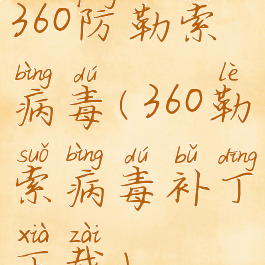 360防勒索
bìng dú lè
病毒(360勒
suǒ bìng dú bǔ dīng
索病毒补丁
xià zài
下载)